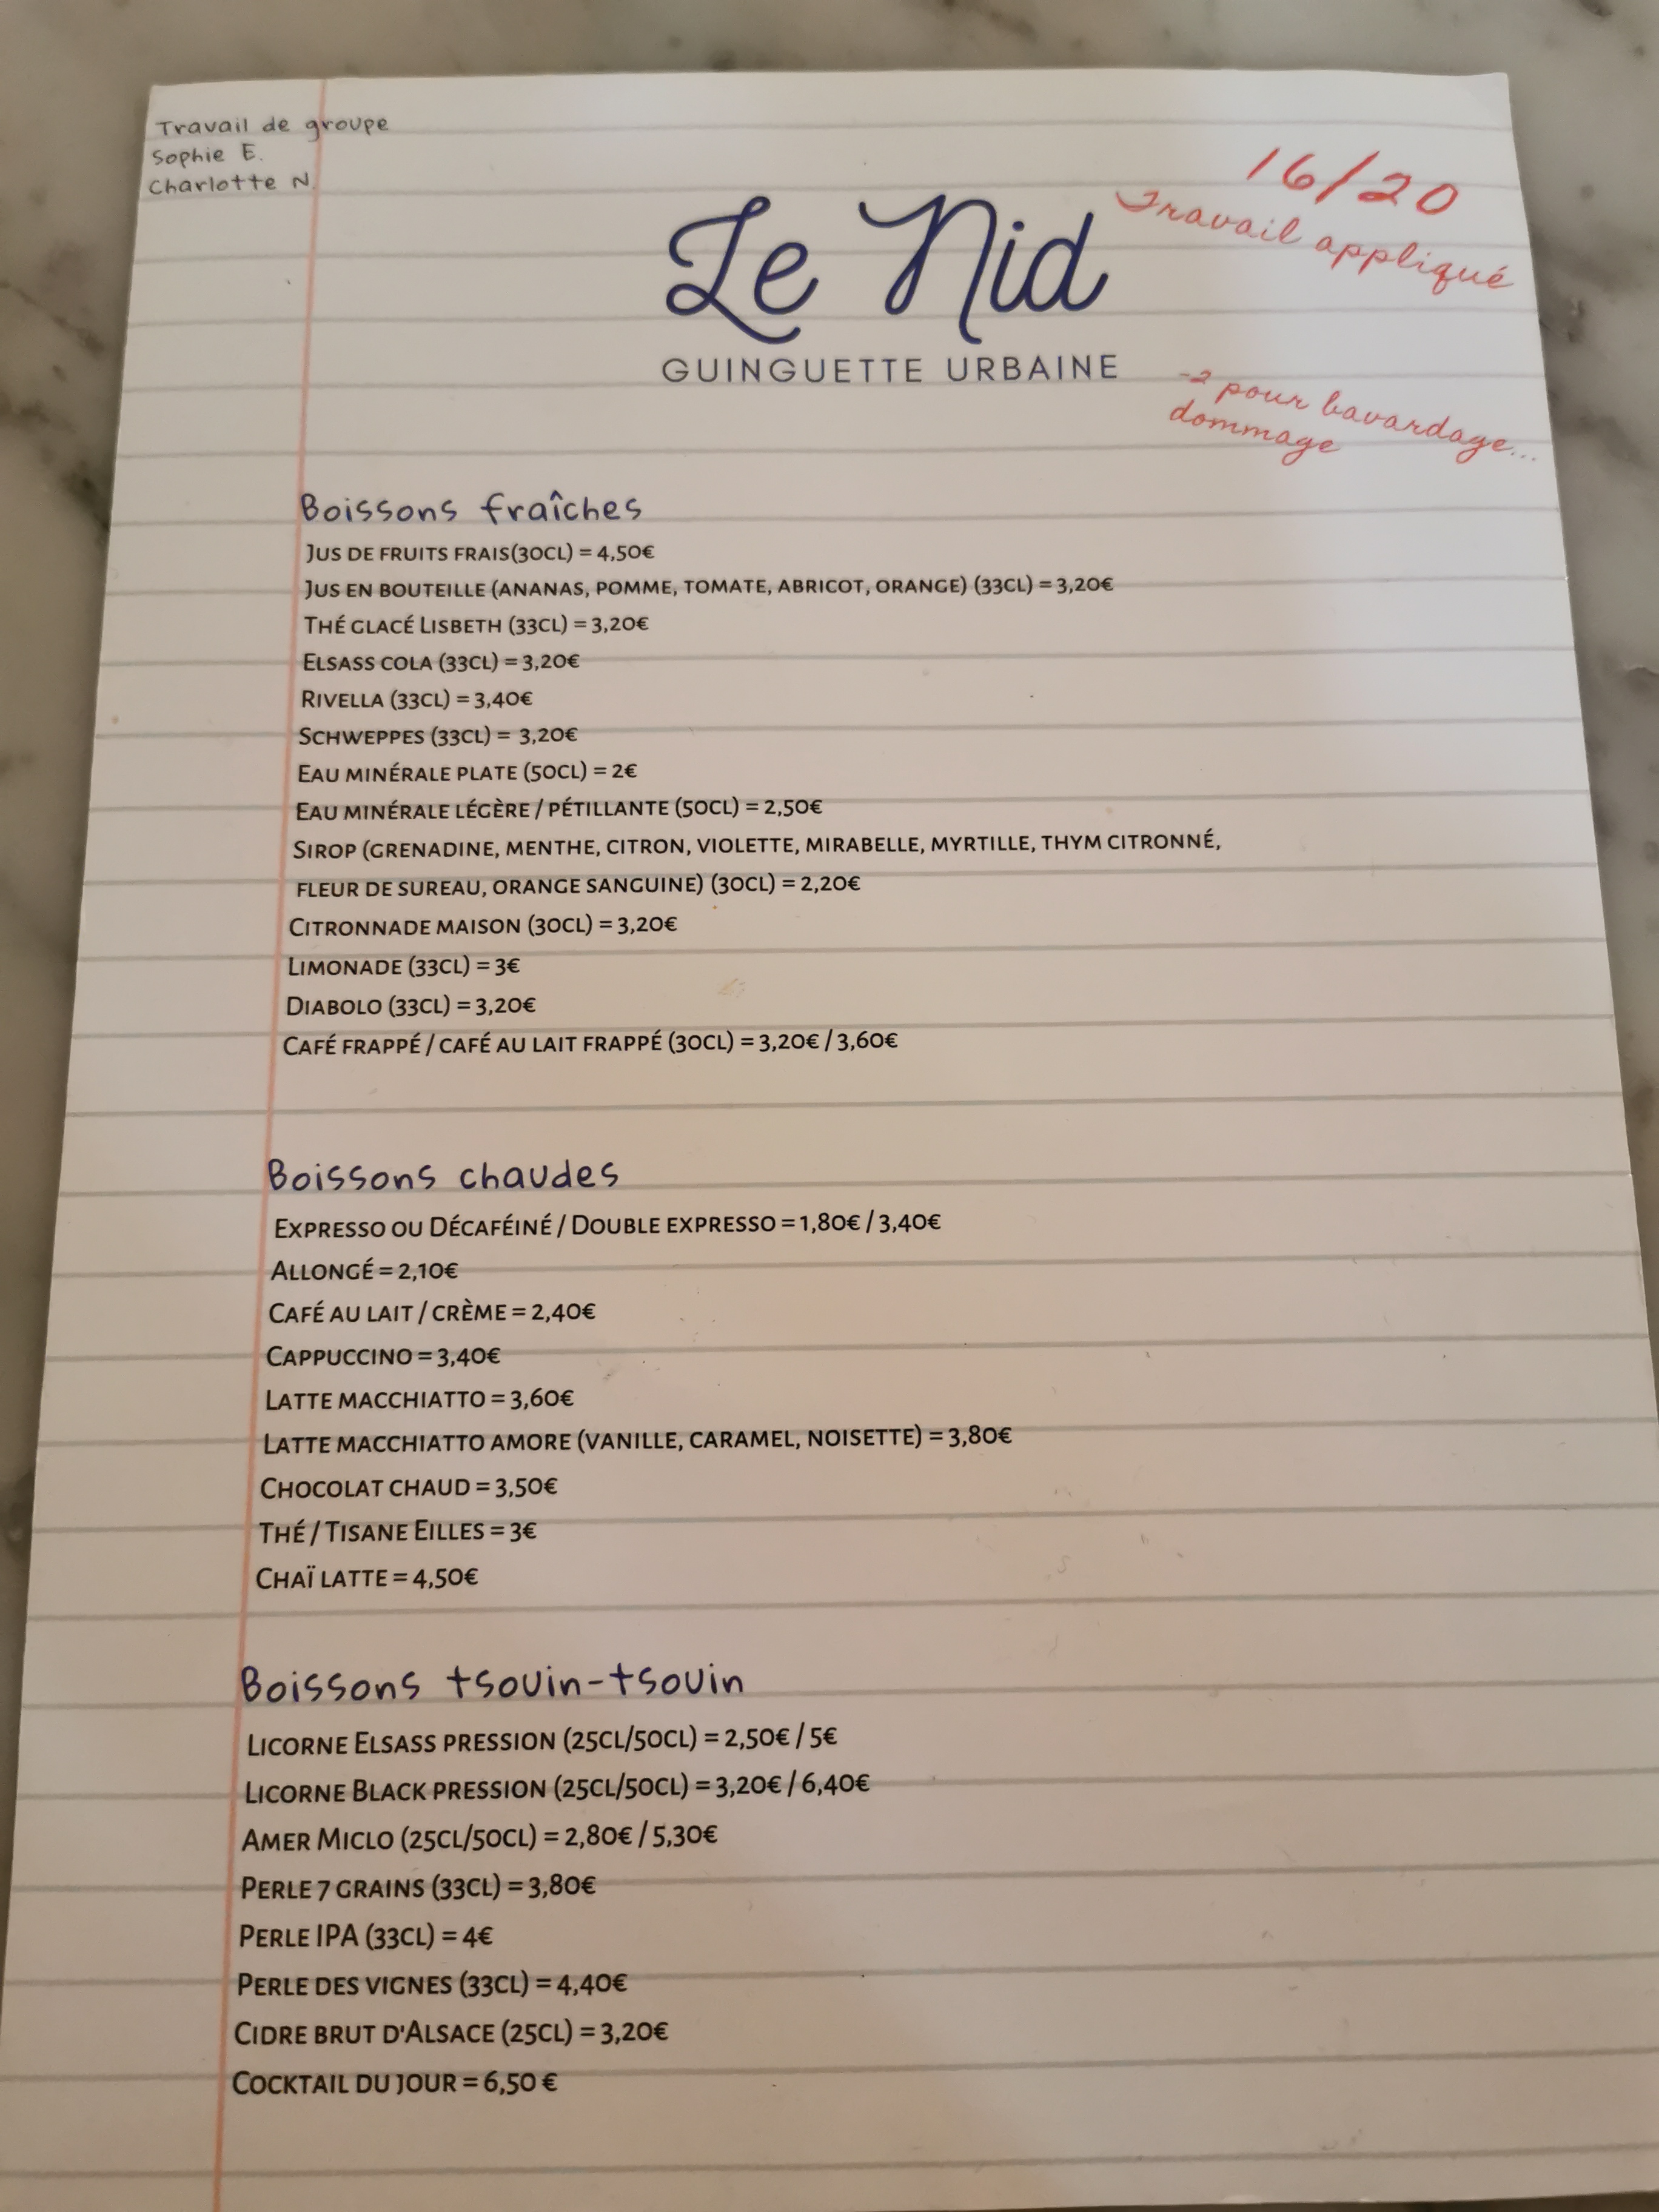 Travail de groupe
Sophie E.
Charlotte N.
16/20
Travail appliqué
Le Nid
GUINGUETTE URBAINE
-2 pour bavardage...
dommage
Boissons fraîches
JUS DE FRUITS FRAIS(30CL) = 4,50€
JUS EN BOUTEILLE (ANANAS, POMME, TOMATE, ABRICOT, ORANGE) (33CL) = 3,20€
THÉ GLACÉ LISBETH (33CL) = 3,20€
ELSASS COLA (33CL) = 3,20€
RIVELLA (33CL) = 3,40€
SCHWEPPES (33CL) = 3,20€
EAU MINÉRALE PLATE (50CL) = 2€
EAU MINÉRALE LÉGÈRE / PÉTILLANTE (50CL) = 2,50€
SIROP (GRENADINE, MENTHE, CITRON, VIOLETTE, MIRABELLE, MYRTILLE, THYM CITRONNÉ,
FLEUR DE SUREAU, ORANGE SANGUINE) (30CL) = 2,20€
CITRONNADE MAISON (30CL) = 3,20€
LIMONADE (33CL) = 3€
DIABOLO (33CL) = 3,20€
CAFÉ FRAPPÉ / CAFÉ AU LAIT FRAPPÉ (30CL) = 3,20€ / 3,60€
Boissons chaudes
EXPRESSO OU DÉCAFÉINÉ / DOUBLE EXPRESSO = 1,80€ / 3,40€
ALLONGÉ = 2,10€
CAFÉ AU LAIT / CRÈME = 2,40€
CAPPUCCINO = 3,40€
LATTE MACCHIATTO = 3,60€
LATTE MACCHIATTO AMORE (VANILLE, CARAMEL, NOISETTE) = 3,80€
CHOCOLAT CHAUD = 3,50€
THÉ / TISANE EILLES = 3€
CHAÏ LATTE = 4,50€
Boissons tsouin-tsouin
LICORNE ELSASS PRESSION (25CL/50CL) = 2,50€ / 5€
LICORNE BLACK PRESSION (25CL/50CL) = 3,20€ / 6,40€
AMER MICLO (25CL/50CL) = 2,80€ / 5,30€
PERLE 7 GRAINS (33CL) = 3,80€
PERLE IPA (33CL) = 4€
PERLE DES VIGNES (33CL) = 4,40€
CIDRE BRUT D'ALSACE (25CL) = 3,20€
COCKTAIL DU JOUR = 6,50 €